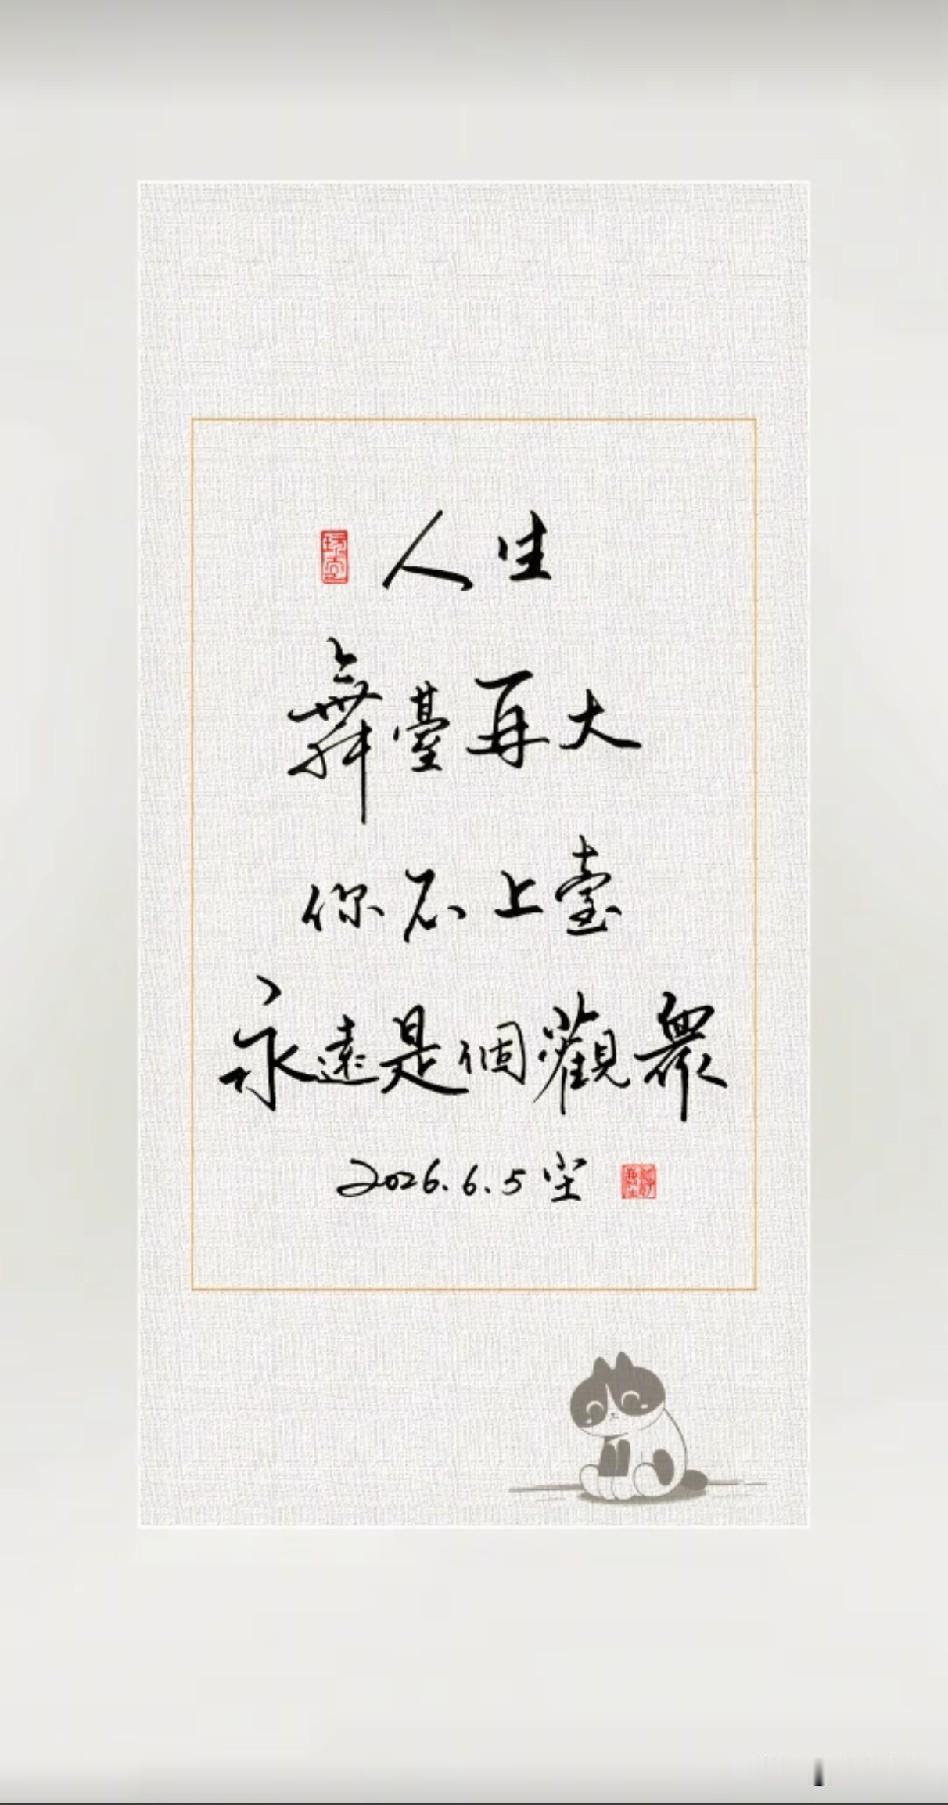 人生
舞臺再大
你不上臺
永遠是個觀衆
2026.6.5